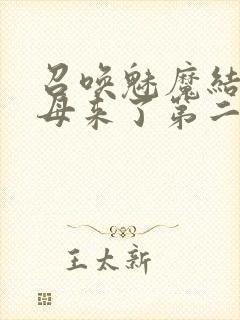 召唤魅魔結
母来了第二
王太新